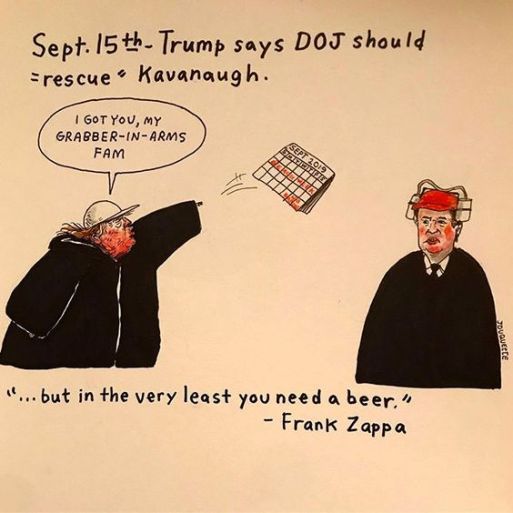 Sept. 15th- Trump says DOJ should
"rescue" Kavanaugh.
I GOT YOU, MY
GRABBER-IN-ARMS
FAM
SEPT 2019
"...but in the very least you need a beer."
- Frank Zappa